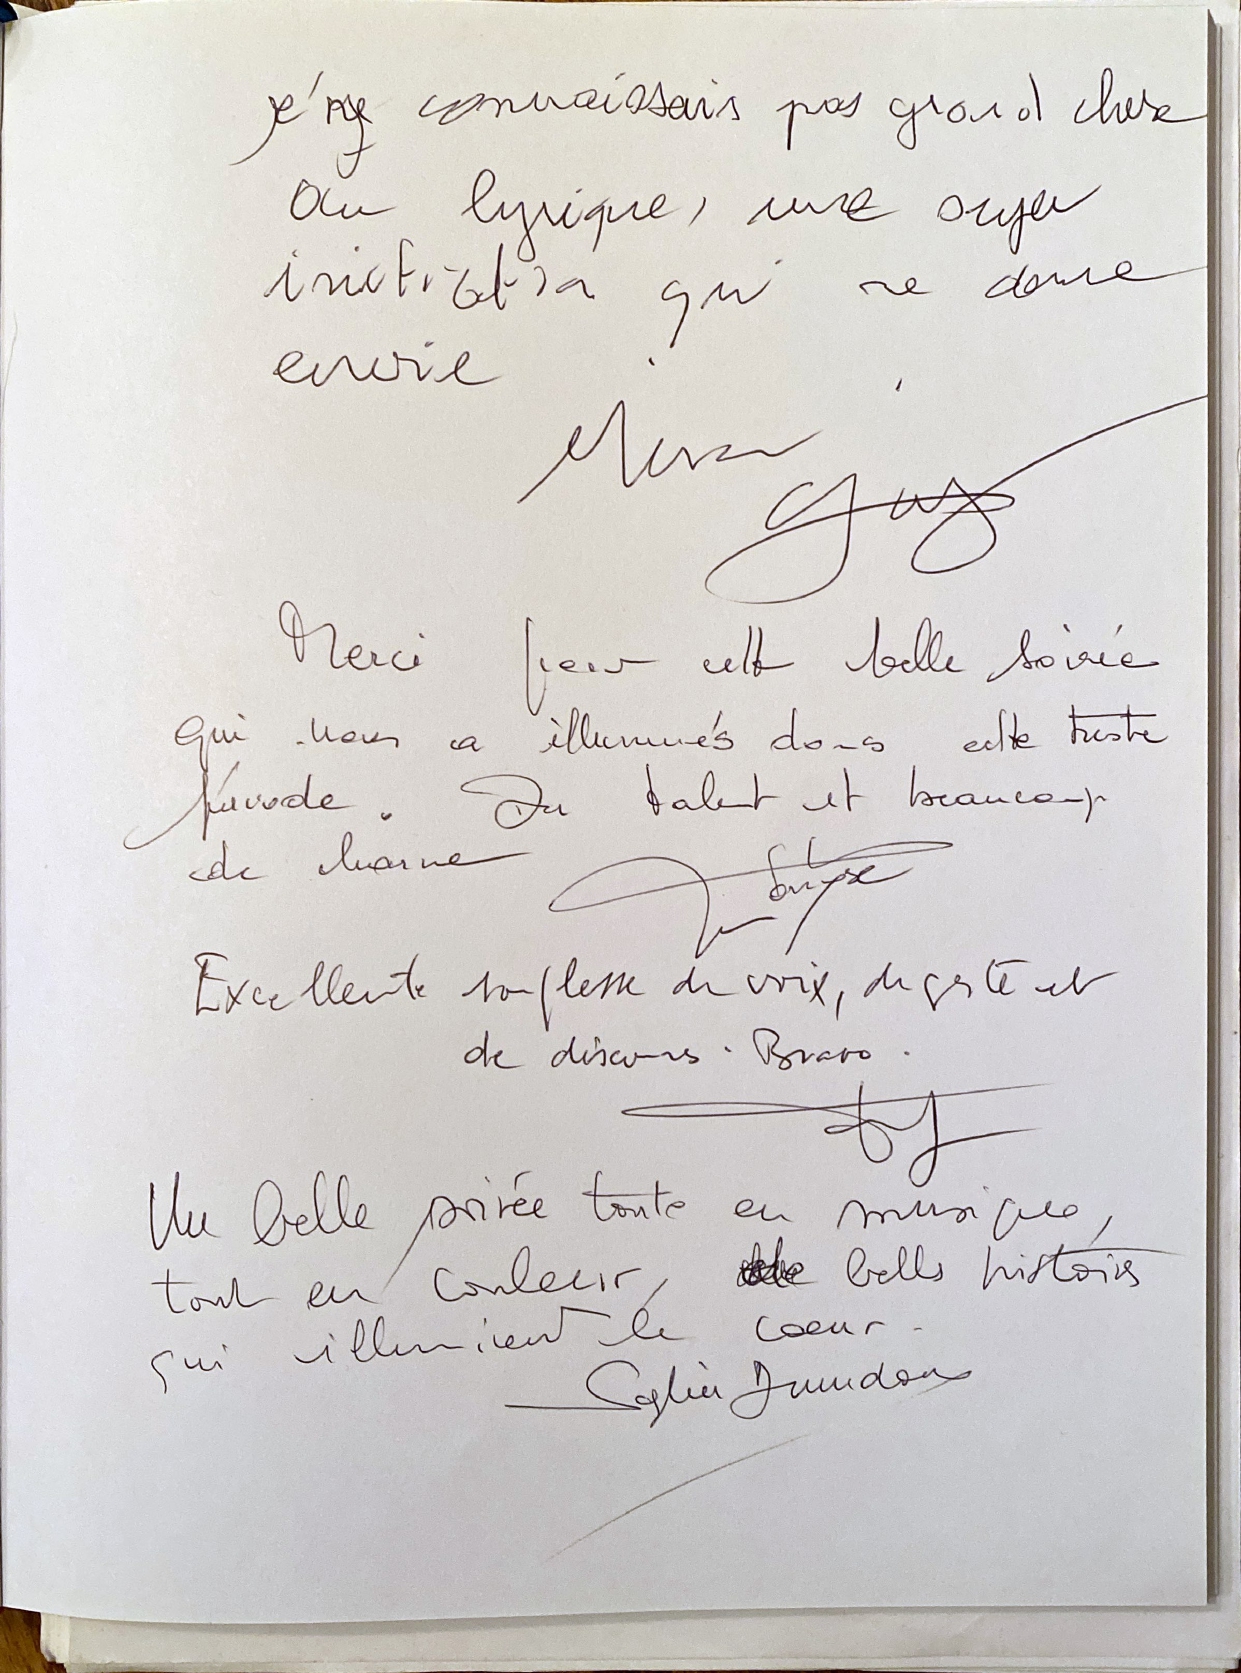 je ne connaissais pas grand chose
au lyrique, une super
initiation qui me donne
envie
Merci
Guy
Merci pour cette belle soirée
qui nous a illuminés dans cette triste
période. Du talent et beaucoup
de charme
Excellente souplesse de voix, de geste et
de discours. Bravo.
Une belle soirée toute en musique,
tout en couleur, belles histoires
qui illuminent le coeur.